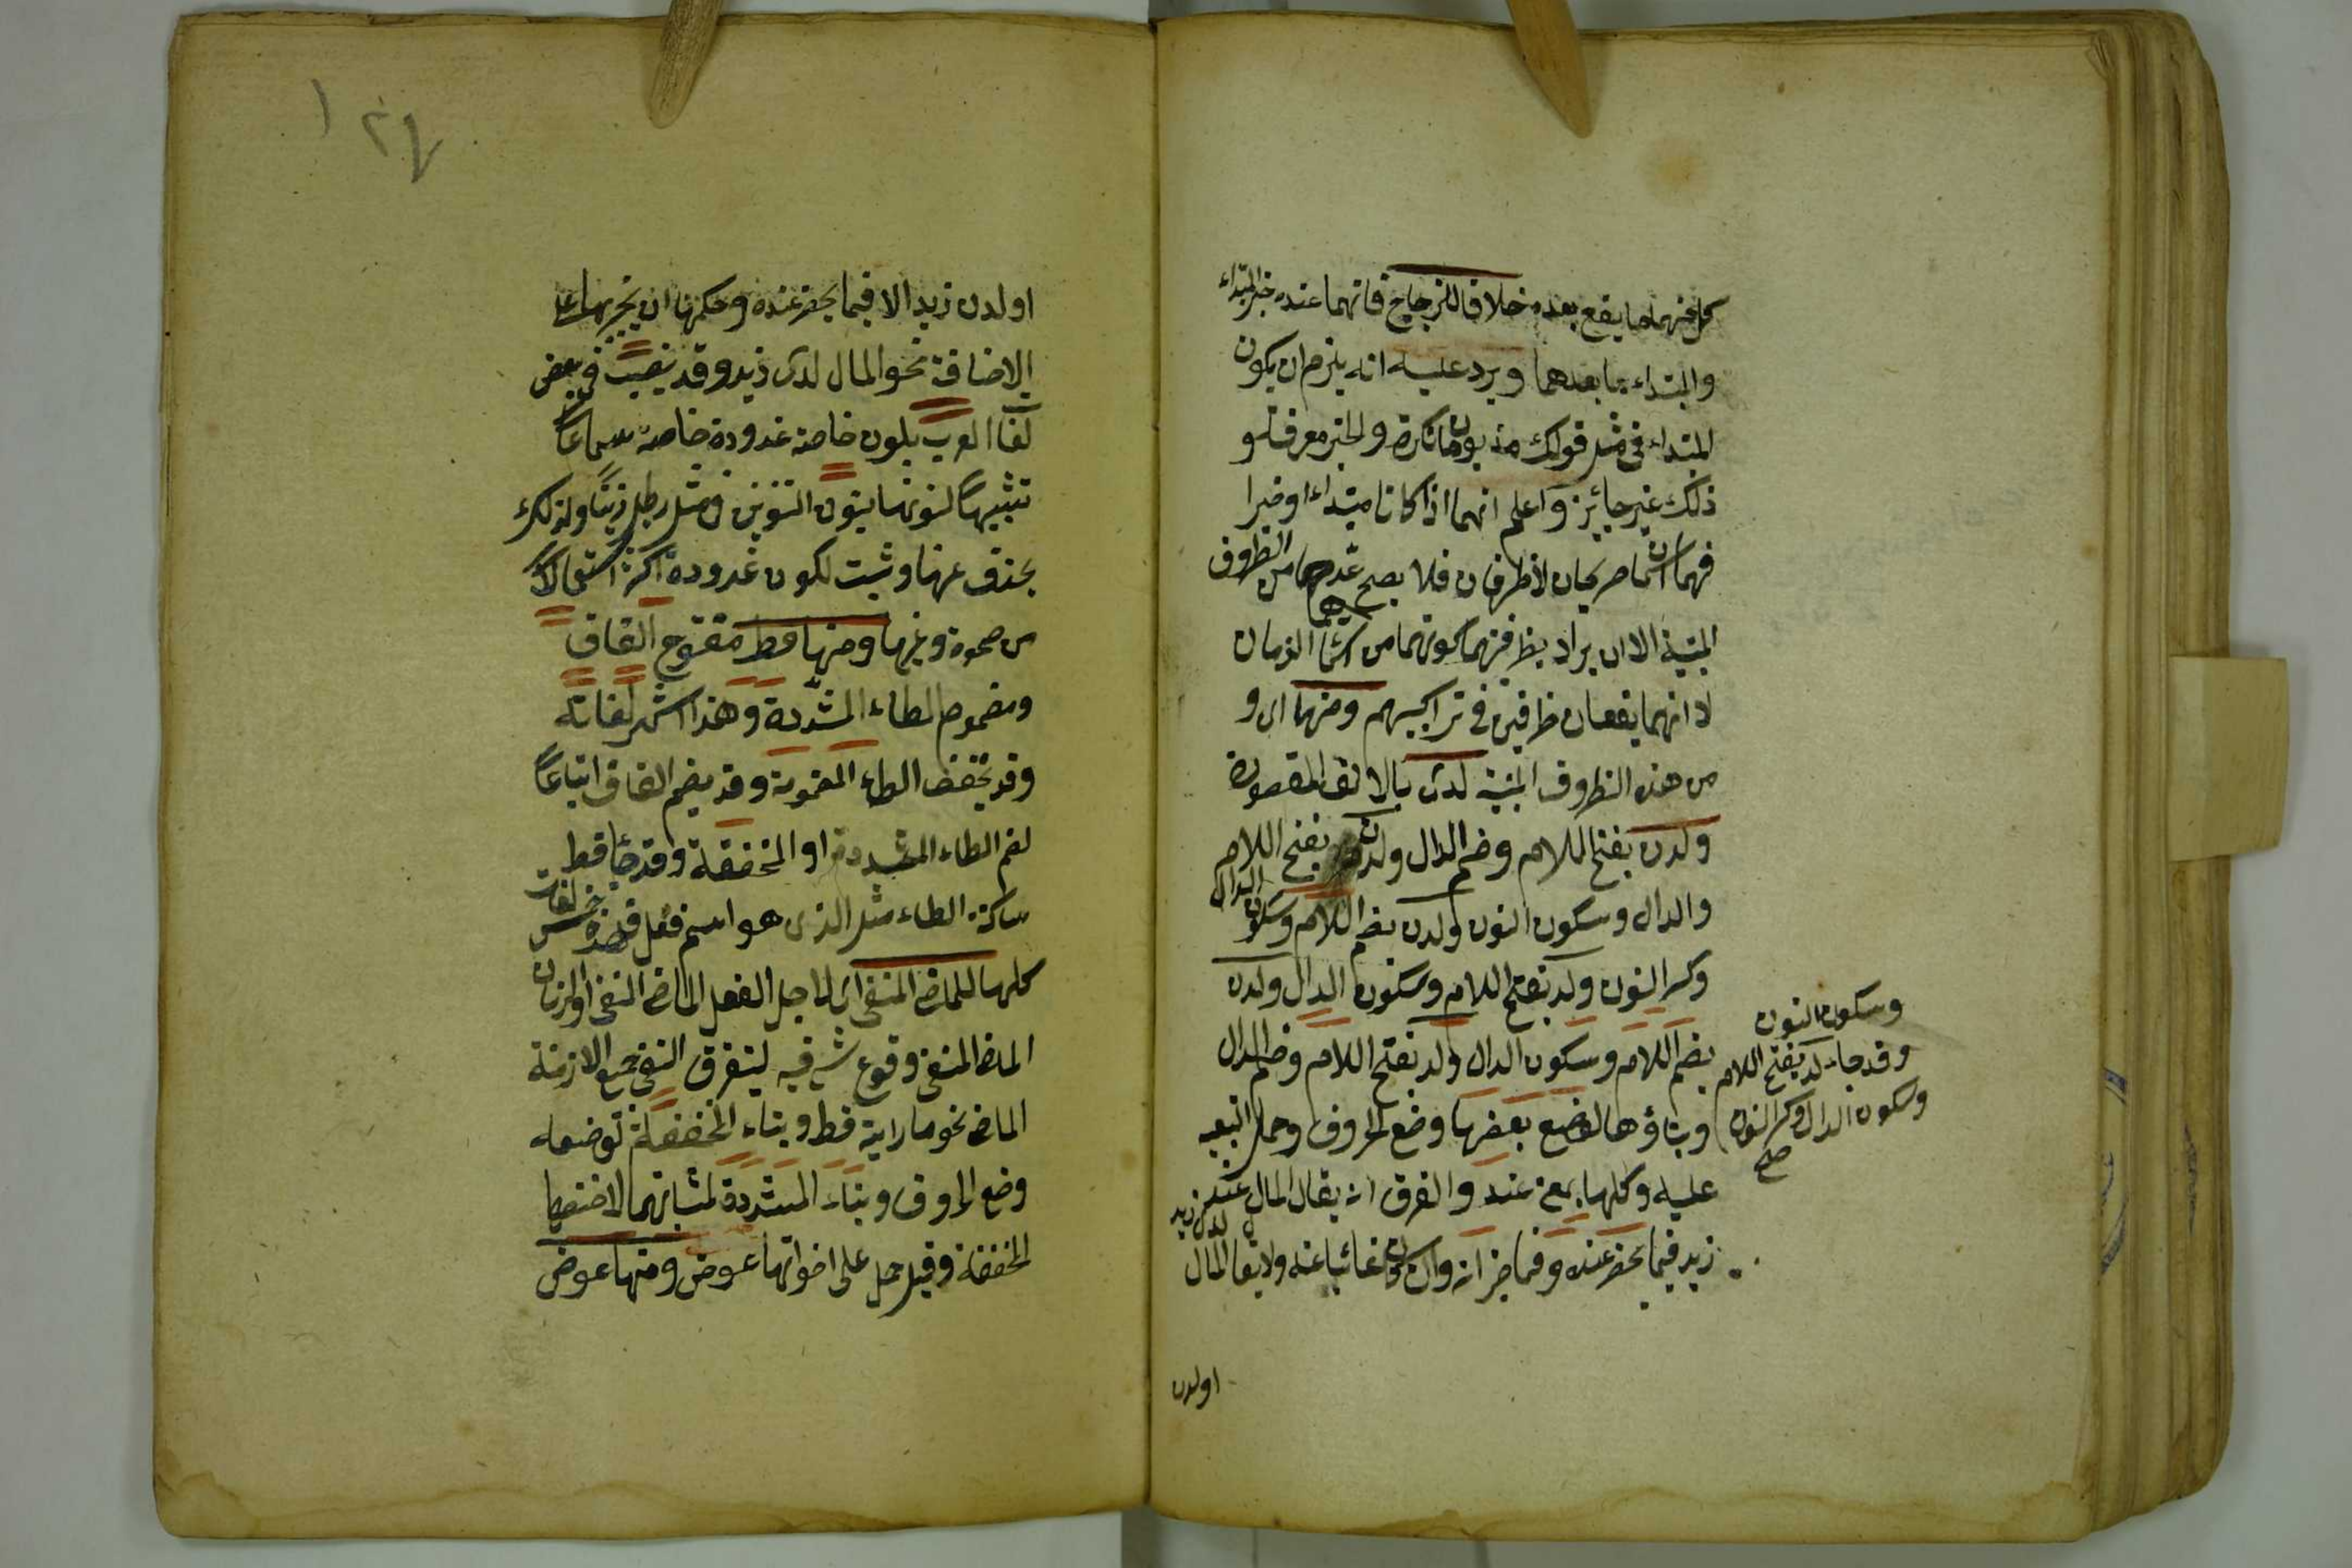 كل منهما ما يقع بعده خلافا للزجاج فانهما عنده خبر المبتداء
والمبتداء ما بعدهما ويرد عليه انه يلزم ان يكون
المبتداء في مثل قولك مذ يومان نكرة والخبر معرفة و
ذلك غير جائز واعلم انهما اذا كانا مبتداء او خبرا
فهما اسمان صريحان لا ظرفان فلا يصح عدهما من الظروف
المبنية الا ان يراد بظرفيتهما كونهما من اسماء الزمان
لا انهما يقعان ظرفين في تراكيبهم ومنها اى و
من هذه الظروف المبنية لدى بالالف المقصورة
ولدن بفتح اللام وضم الدال ولدن بفتح اللام
والدال وسكون النون ولدن بضم اللام وسكون الدال
وكسر النون ولد بفتح اللام وسكون الدال ولدن
بضم اللام وسكون الدال ولد بفتح اللام وضم الدال
وبناؤها لوضع بعضها وضع الحروف وحمل البقية
عليه وكلها بمعنى عند والفرق انه يقال المال عند
زيد فيما يحضر عنده وفيما خزانه وان كان غائبا عنه ولا يقال المال
لدى زيد
وسكون النون
وقد جاء لدن بفتح اللام
وسكون الدال وكسر النون
صح
اولدن
١٢٤
اولدن زيد الا فيما يحضر عنده وحكمها ان يجر بها على
الاضافة نحو المال لدى زيد وقد نصبت في بعض
لغات العرب بلدن خاصة غدوة خاصة سماعا
تشبيها لنونها بنون التنوين في مثل رطل زيتا ولذلك
يحذف عنها وثبت لكون غدوة اكثر استعمالا
من سحرة وغيرها ومنها قط مفتوح القاف
ومضموم الطاء المشددة وهذا اشهر لغاته
وقد يخفف الطاء المضمومة وقد يضم القاف اتباعا
لضم الطاء المشددة او المخففة وقد جاء قط
ساكنة الطاء مثل الذى هو اسم فعل فهذه خمس لغات
كلها للماضى المنفى اى لاجل الفعل الماضى المنفى او الزمان
الماضى المنفى وقوع شئ فيه ليستغرق النفى جميع الازمنة
الماضى نحو ما رايته قط وبناء المخففة لوضعها
وضع الحروف وبناء المشددة لمشابهتها لاختها
المخففة وقيل حمل على اخواتها عوض ومنها عوض